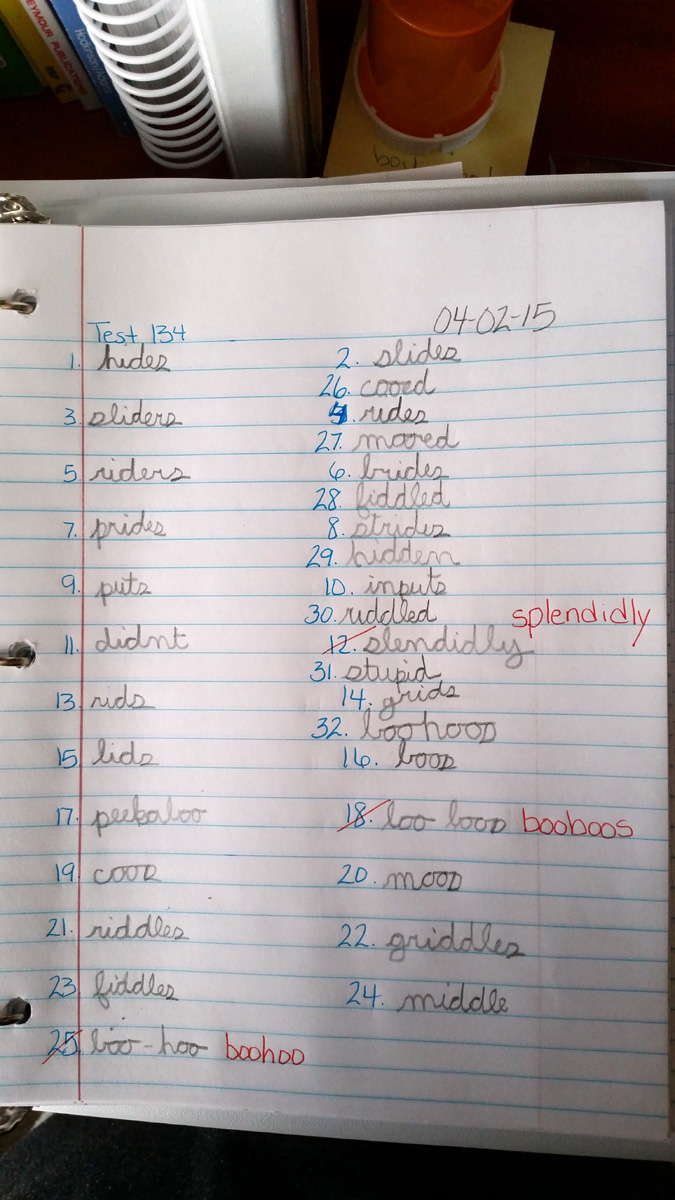 SEYMOUR PUBLICATIONS
04-02-15
Test 134
1. hides 2. slides
26. cooed
3. sliders 4. rides
27. mooed
5 riders 6. brides
28. fiddled
7. prides 8. strides
29. hidden
9. puts 10. inputs
30. riddled splendidly
11. didnt 12. slendidly
31. stupid
13. rids 14. grids
32. boohoos
15. lids 16. boos
17. peekaboo 18. boo boos booboos
19. coos 20. moos
21. riddles 22. griddles
23. fiddles 24. middle
25. boo-hoo boohoo